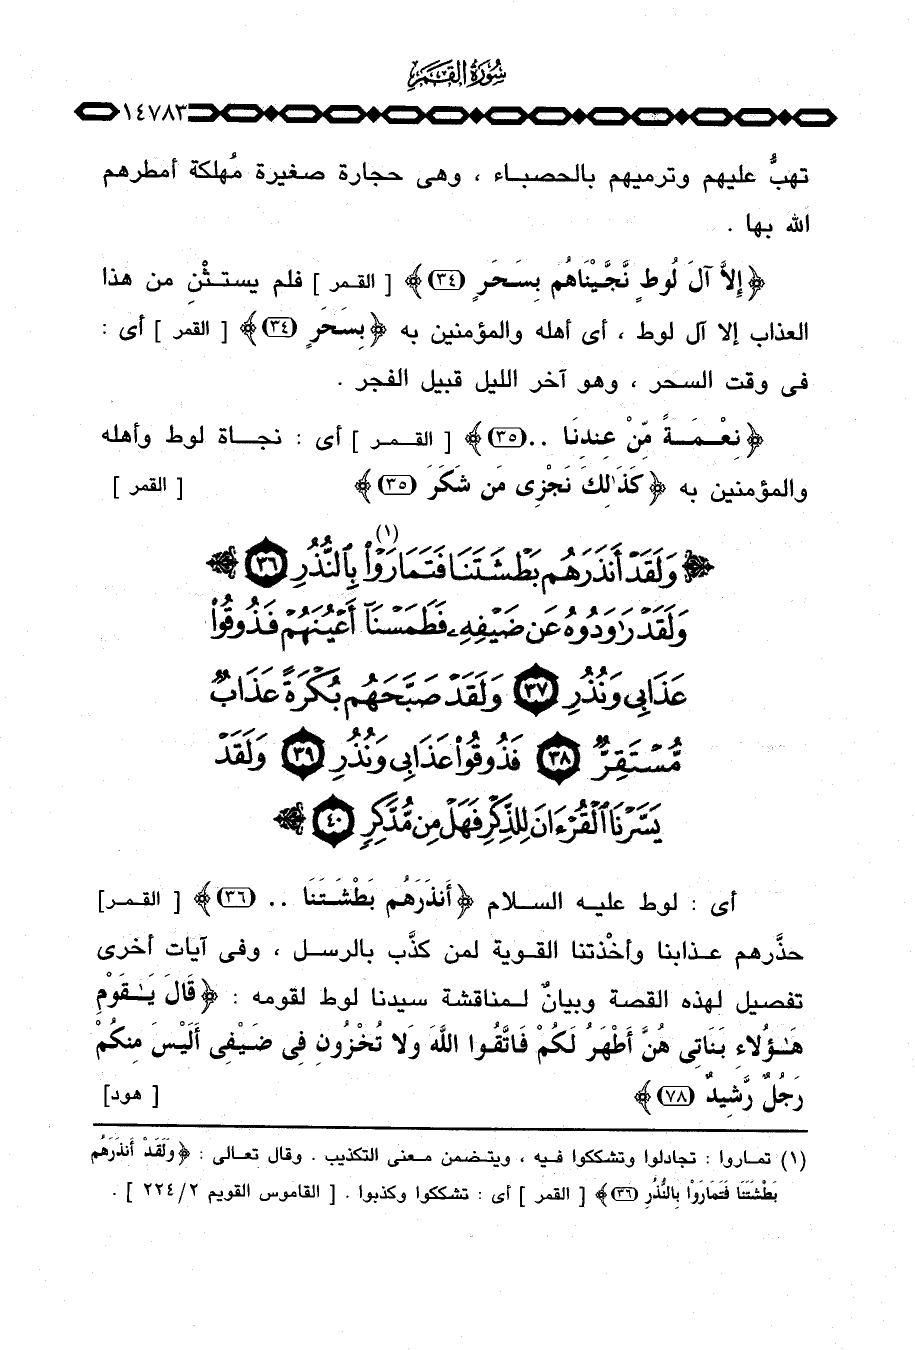 سُورَةُ القَمَرِ
١٤٧٨٣
تهبُّ عليهم وترميهم بالحصباء ، وهى حجارة صغيرة مُهلكة أمطرهم
الله بها .
﴿ إِلاَّ آلَ لُوطٍ نَّجَّيْنَاهُم بِسَحَرٍ (٣٤) ﴾ [ القمر ] فلم يستثْنِ من هذا
العذاب إلا آل لوط ، أى أهله والمؤمنين به ﴿ بِسَحَرٍ (٣٤) ﴾ [ القمر ] أى :
فى وقت السحر ، وهو آخر الليل قبيل الفجر .
﴿ نِعْمَةً مِّنْ عِندِنَا ..(٣٥) ﴾ [ القمر ] أى : نجاة لوط وأهله
والمؤمنين به ﴿ كَذَٰلِكَ نَجْزِى مَن شَكَرَ (٣٥) ﴾ [ القمر ]
﴿ وَلَقَدْ أَنذَرَهُم بَطْشَتَنَا فَتَمَارَوْا۟ (١) بِٱلنُّذُرِ ٣٦ ﴾
وَلَقَدْ رَٰوَدُوهُ عَن ضَيْفِهِۦ فَطَمَسْنَآ أَعْيُنَهُمْ فَذُوقُوا۟
عَذَابِى وَنُذُرِ ٣٧ وَلَقَدْ صَبَّحَهُم بُكْرَةً عَذَابٌ
مُّسْتَقِرٌّ ٣٨ فَذُوقُوا۟ عَذَابِى وَنُذُرِ ٣٩ وَلَقَدْ
يَسَّرْنَا ٱلْقُرْءَانَ لِلذِّكْرِ فَهَلْ مِن مُّدَّكِرٍ ٤٠ ﴾
أى : لوط عليه السلام ﴿ أَنذَرَهُم بَطْشَتَنَا .. (٣٦) ﴾ [ القمر]
حذَّرهم عذابنا وأخْذتنا القوية لمن كذَّب بالرسل ، وفى آيات أخرى
تفصيل لهذه القصة وبيانٌ لمناقشة سيدنا لوط لقومه : ﴿ قَالَ يَـٰقَوْمِ
هَـٰؤُلاءِ بَنَاتِى هُنَّ أَطْهَرُ لَكُمْ فَاتَّقُوا اللَّهَ وَلا تُخْزُونِ فِى ضَيْفِى أَلَيْسَ مِنكُمْ
رَجُلٌ رَّشِيدٌ (٧٨) ﴾ [ هود]
(١) تماروا : تجادلوا وتشككوا فيه ، ويتضمن معنى التكذيب . وقال تعالى : ﴿ وَلَقَدْ أَنذَرَهُم
بَطْشَتَنَا فَتَمَارَوْا بِالنُّذُرِ (٣٦) ﴾ [ القمر ] أى : تشككوا وكذبوا . [ القاموس القويم ٢/٢٢٤ ] .